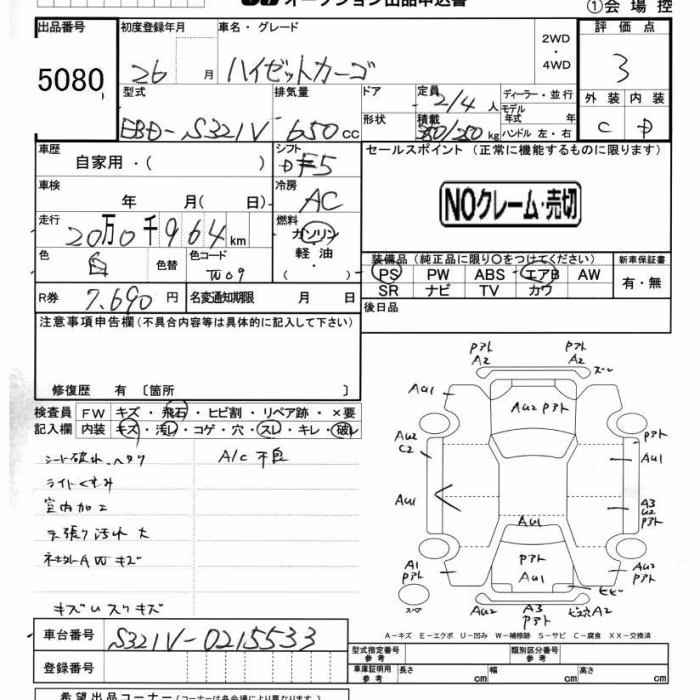 オークション出品申込書
①会場控
出品番号 初度登録年月 車名・グレード 2WD・4WD 評価点
5080 26月 ハイゼットカーゴ 3
型式 排気量 ドア 定員 2/4人 ディーラー・並行 外装 内装
EBD-S321V 650cc 形状 積載 350/250kg モデル年式 年 C D
ハンドル 左・右
車歴 シフト セールスポイント(正常に機能するものに限ります)
自家用・( ) F5
車検 冷房 NOクレーム・売切
年 月( 日) AC
走行 燃料
20万0千964km ガソリン
色 色替 色コード 軽油 装備品(純正品に限り○をつけてください) 新車保証書
白 W09 ・( ) PS PW ABS エアB AW 有・無
R券 7,690円 名変通知期限 月 日 SR ナビ TV カワ
注意事項申告欄(不具合内容等は具体的に記入して下さい) 後日品
修復歴 有〔箇所 〕
検査員 FW キズ・飛石・ヒビ割・リペア跡・×要
記入欄 内装 キズ・汚レ・コゲ・穴・スレ・キレ・破レ
シート破れ、ヘタリ A/C不良
ライトくすみ
室内加工
天張り汚れ大
キズ U スリキズ
Pアト Pアト
A2 A2
AU1 AU2 Pアト
AU2 Pアト
C2 AU1
AU1 A3
U2
Pアト
AU1
A1 Pアト AU2
Pアト AU1 Pアト
ヒビ
AU2 A3 A2
Pアト
A-キズ E-エクボ U-凹み W-補修跡 S-サビ C-腐食 XX-交換済
車台番号 S321V-0215533 型式指定番号 参考 類別区分番号 参考
登録番号 車庫証明用 参考 長さ cm 幅 cm 高さ cm
希望出品コーナー(コーナーは各会場により異なります。)